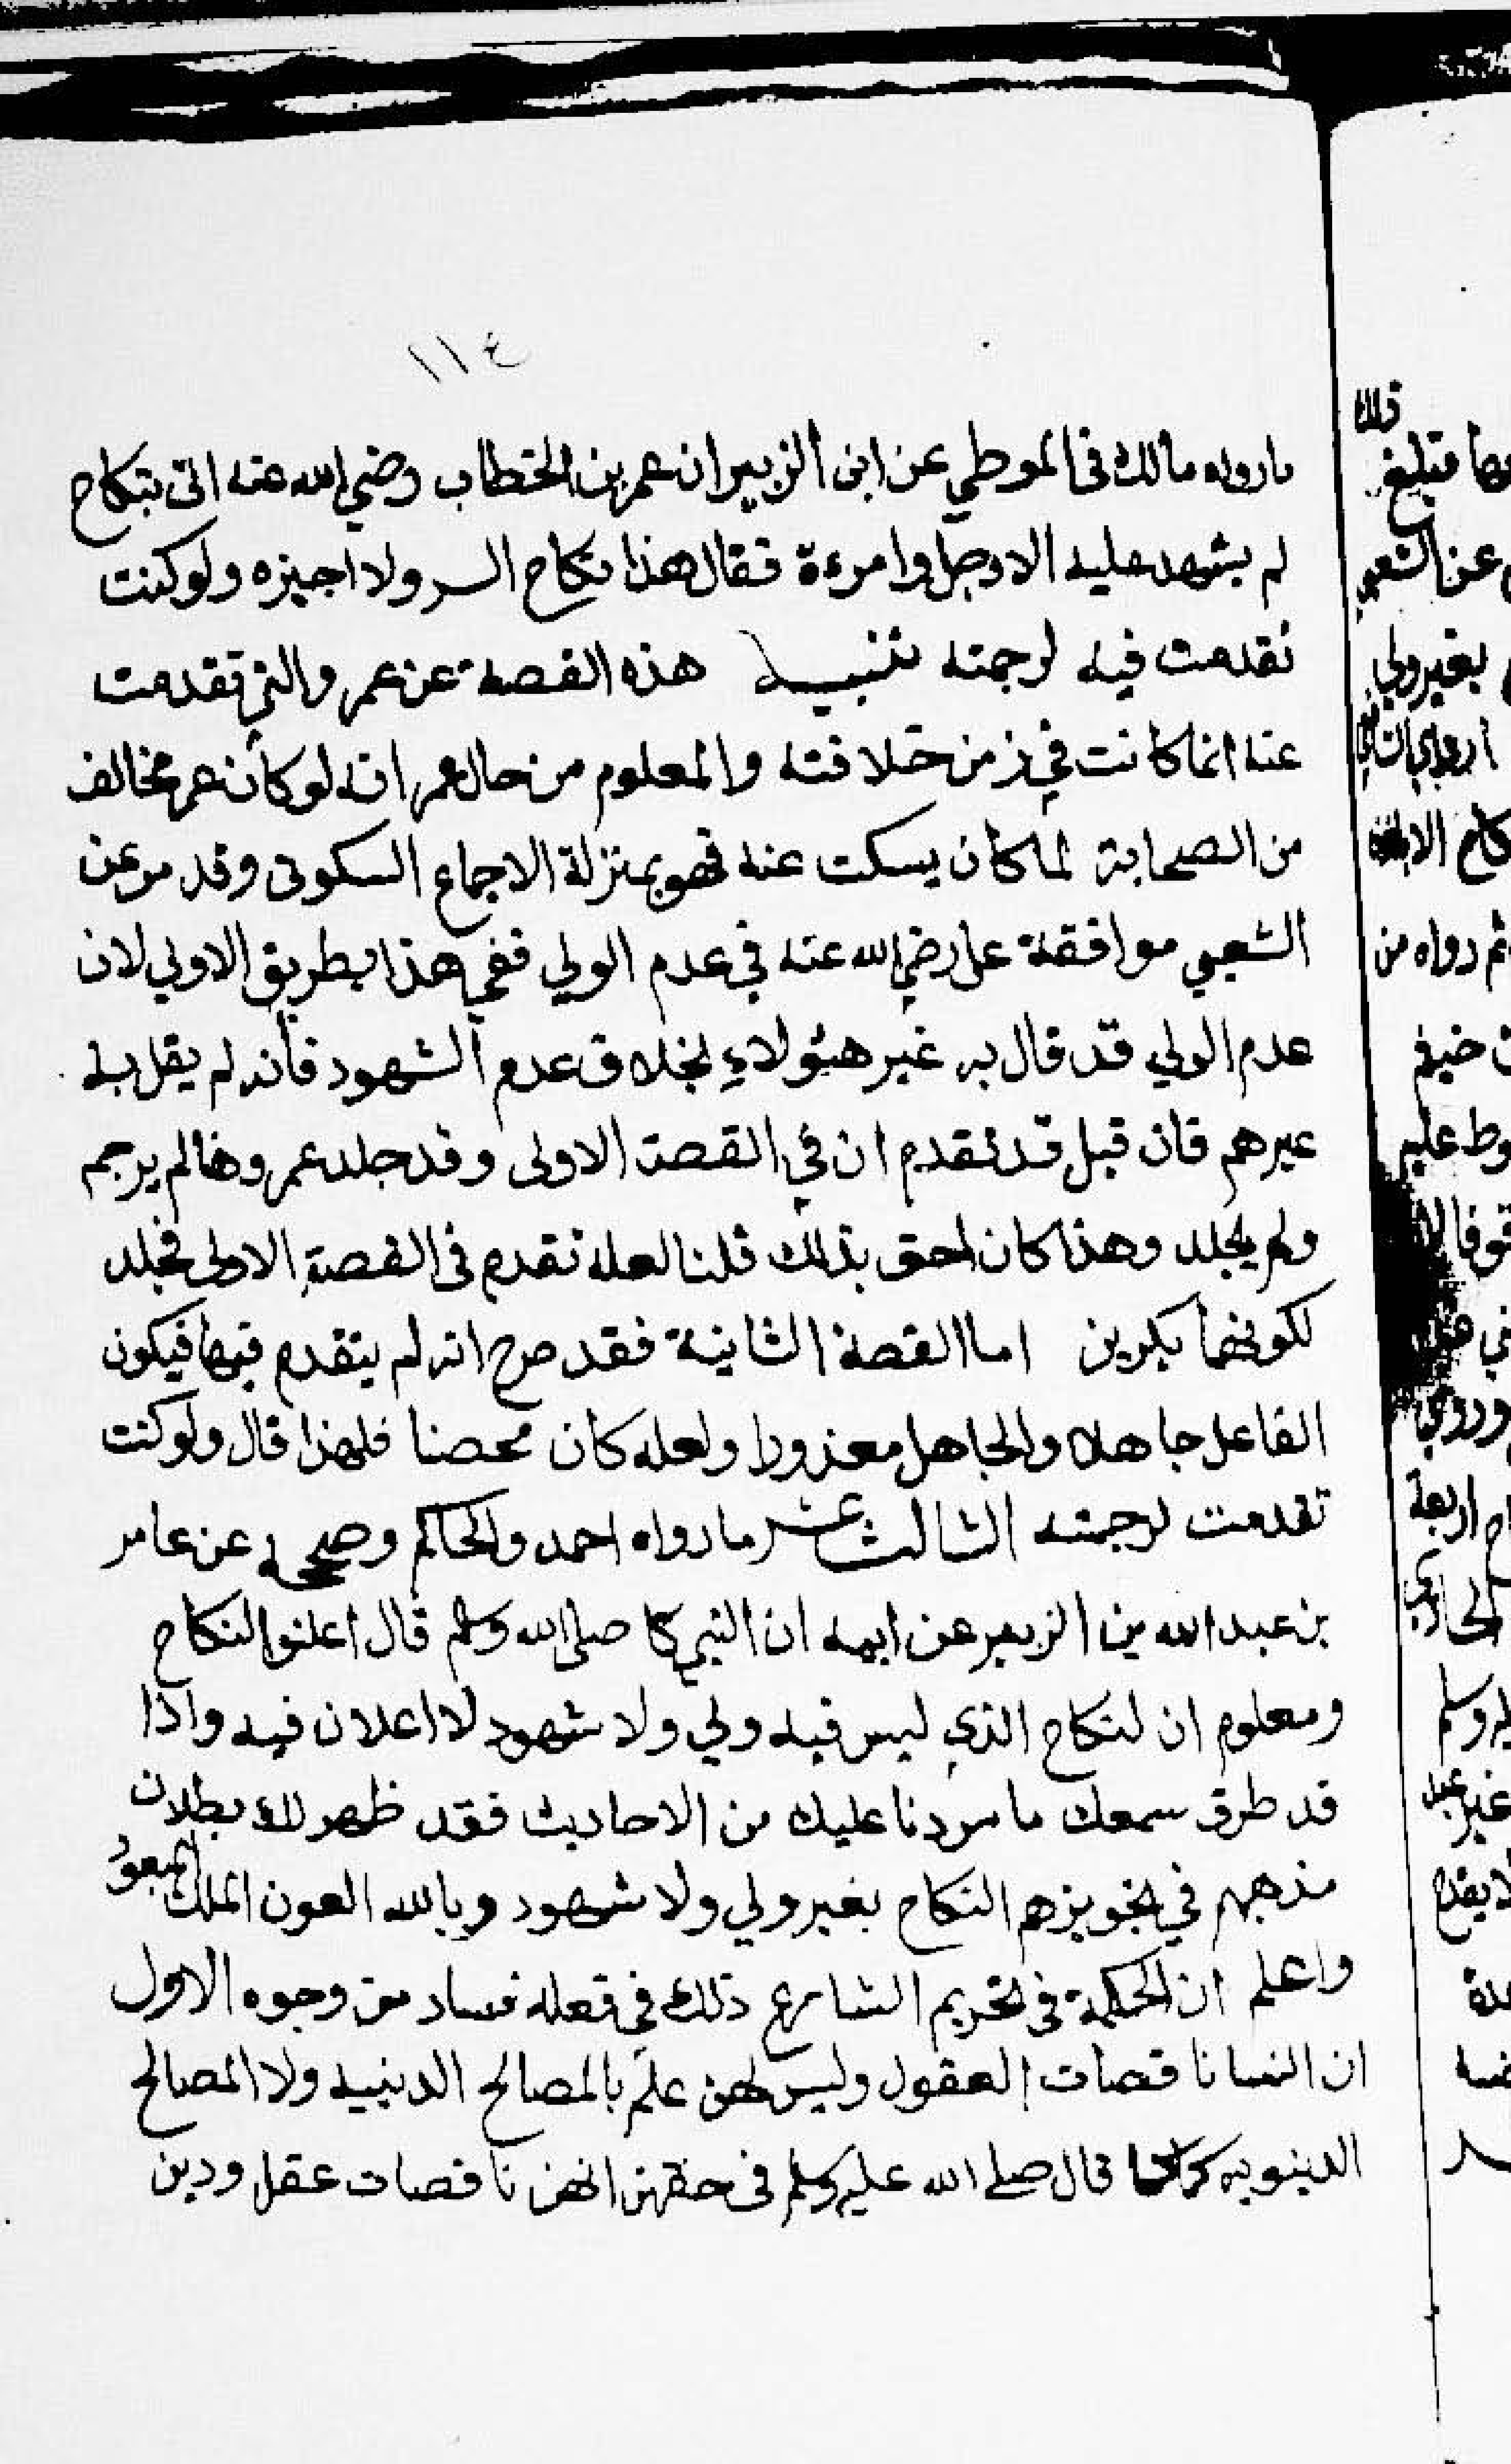 ١١٤
مارواه مالك في الموطي عن ابن الزبير ان عمر بن الخطاب رضي الله عنه اتى بنكاح
لم يشهد عليه الا رجل وامرءة فقال هذا نكاح السر ولا اجيزه ولو كنت
تقدمت فيه لرجمته تنبيه هذه القصة عن عمر والتي تقدمت
عنه انما كانت في زمن خلافته والمعلوم من حال عمر انه لو كان عمر مخالف
من الصحابة لما كان يسكت عنه فهو بمنزلة الاجماع السكوتى وقد مر عن
الشعبي موافقة على رضي الله عنه في عدم الولي ففي هذا بطريق الاولي لان
عدم الولي قد قال به غير هئولاء بخلاف عدم الشهود فانه لم يقل به
غيرهم فان قيل قد تقدم ان في القصة الاولى وقد جلد عمر وهنا لم يرجم
ولم يجلد وهذا كان احق بذلك قلنا لعله تقدم في القصة الاولى فجلد
لكونهما بكرين اما القصة الثانية فقد صرح انه لم يتقدم فيها فيكون
الفاعل جاهلا والجاهل معذورا ولعله كان محصنا فلهذا قال ولو كنت
تقدمت لرجمته الثالث عشر ما رواه احمد والحاكم وصححه عن عامر
بن عبد الله بن الزبير عن ابيه ان النبي صلى الله وسلم قال اعلنوا النكاح
ومعلوم ان لنكاح الذي ليس فيه ولي ولا شهود لا اعلان فيه واذا
قد طرق سمعك ما سردنا عليك من الاحاديث فقد ظهر لك بطلان
مذهبهم في تجويزهم النكاح بغير ولي ولا شهود وبالله العون الملك المعبود
واعلم ان الحكمة في تحريم الشارع ذلك في فعله فساد من وجوه الاول
ان النسا ناقصات العقول وليس لهن علم بالمصالح الدينيه ولا المصالح
الدينويه قال صلى الله عليه وسلم في حقهن انهن ناقصات عقل ودين